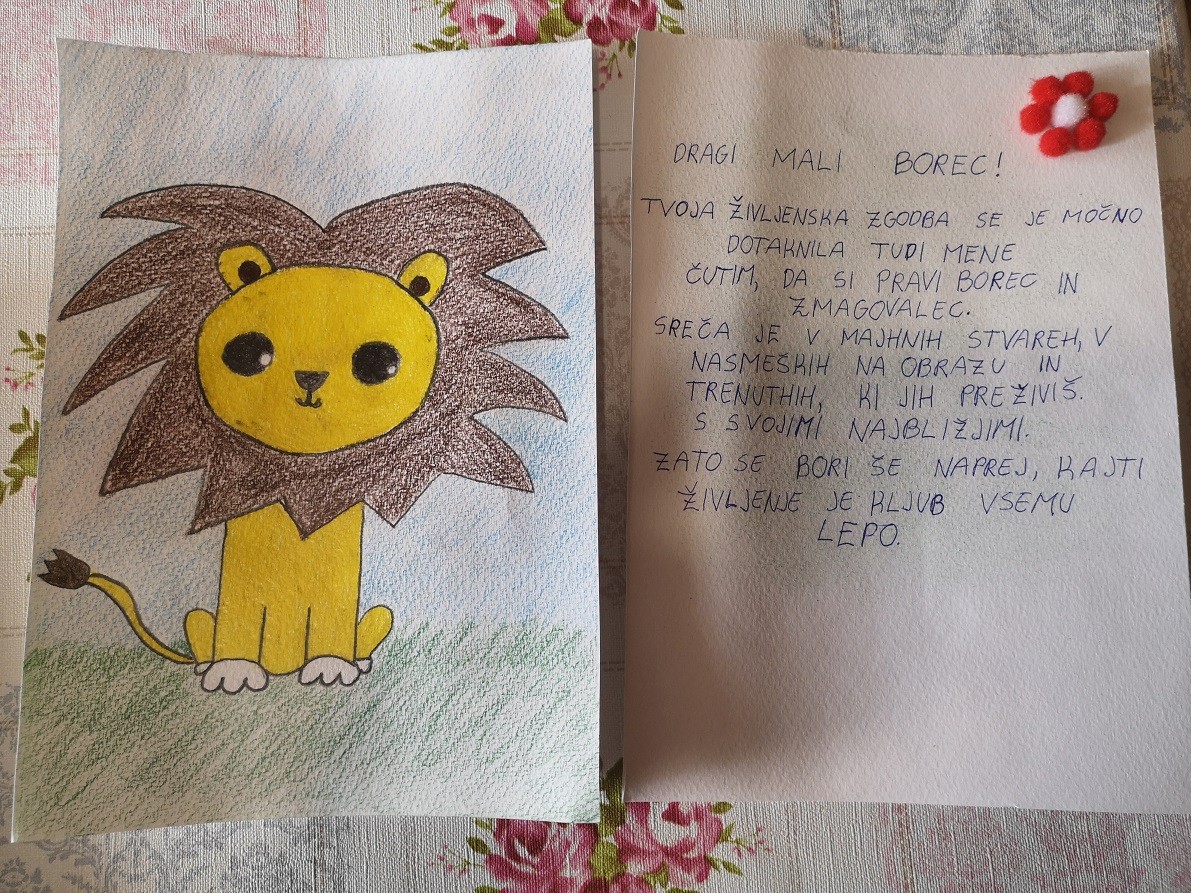 DRAGI MALI BOREC!
TVOJA ŽIVLJENSKA ZGODBA SE JE MOČNO
DOTAKNILA TUDI MENE
ČUTIM, DA SI PRAVI BOREC IN
ZMAGOVALEC.
SREČA JE V MAJHNIH STVAREH, V
NASMEŠKIH NA OBRAZU IN
TRENUTHIH, KI JIH PREŽIVIŠ.
S SVOJIMI NAJBLIŽJIMI.
ZATO SE BORI ŠE NAPREJ, KAJTI
ŽIVLJENJE JE KLJUB VSEMU
LEPO.